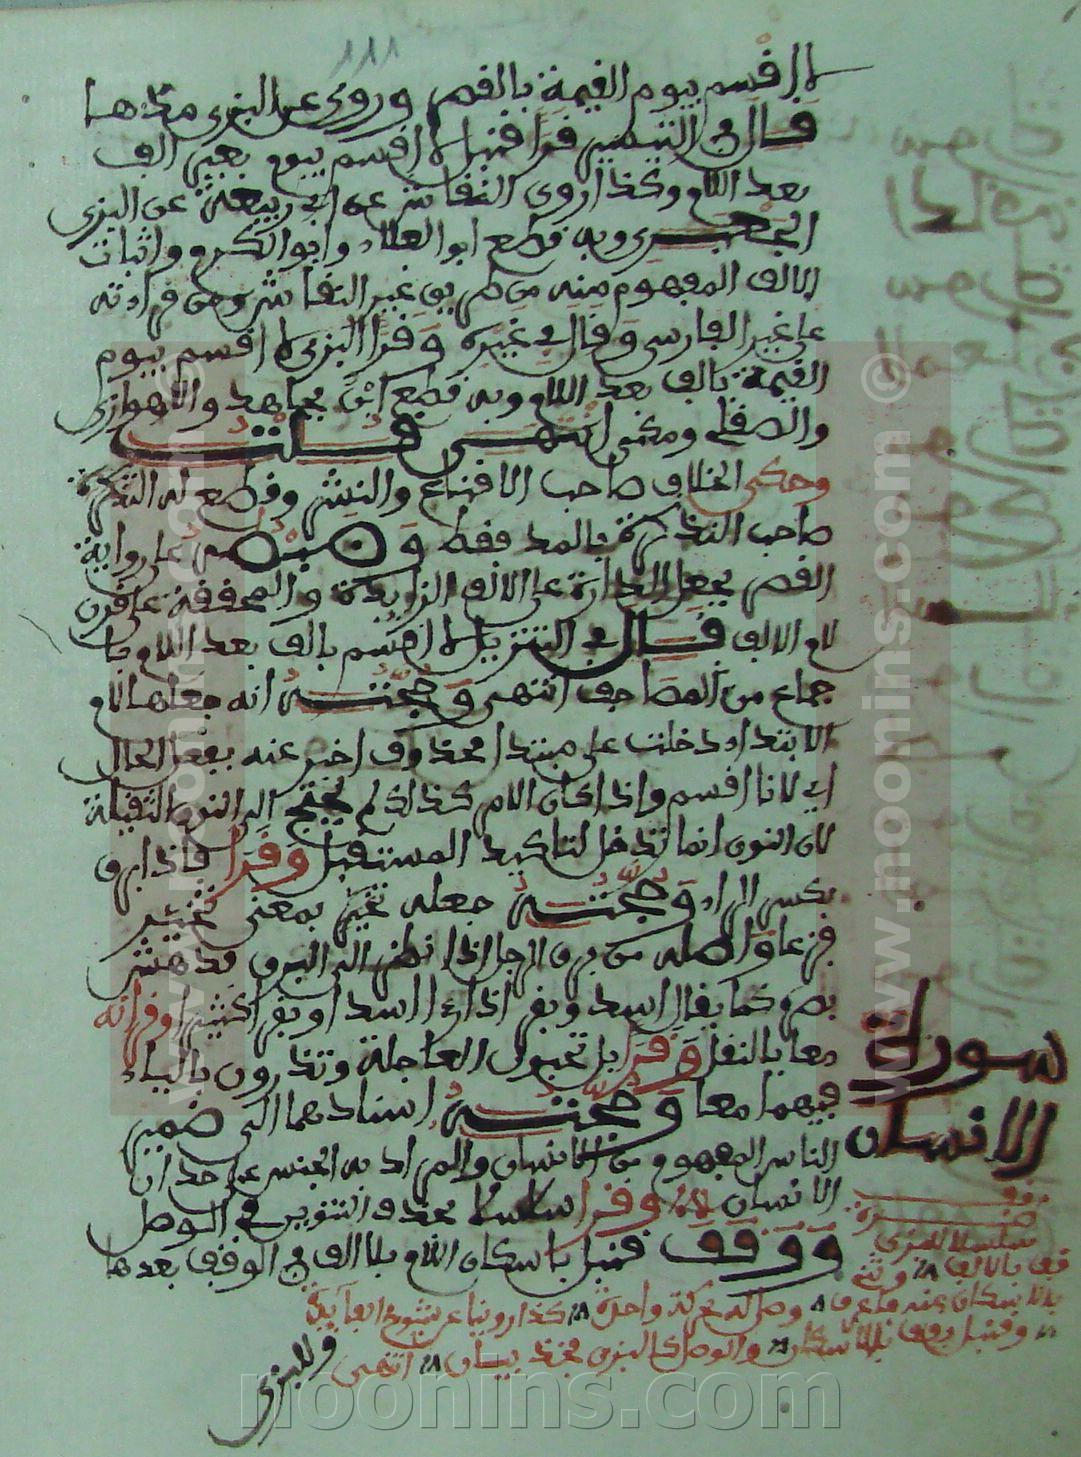 ١٨١
لا اقسم بيوم القيمة بالقصر وروي عن البزي مدها
قال في التيسير قرا قنبل لا اقسم بيوم بغير الف
بعد اللام وكذا روى النقاش عن ابي ربيعة عن البزي
الجعبري وبه قطع ابو العلاء وابو الكرم واثبات
الالف المفهوم منه من طريق غير النقاش وهي قراءته
على غير الفارسي وقال في غيره وقرا البزي لا اقسم بيوم
القيمة بالف بعد اللام وبه قطع ابن مجاهد والاهوازي
والصقلي ومكي انتهى قلت
وحكى الخلاف صاحب الاقناع والنشر وقطع له
صاحب التذكرة بالمد فقط وضبطه على رواية
القصر بجعل الدارة على الالف الزايدة والمخففة على قرن
لام الالف قال في التنزيل لا اقسم بالف بعد اللام با
جماع من المصاحف انتهى وحجته انه جعلها لام
الابتداء دخلت على مبتدا محذوف اخبر عنه بفعل الحال
اي لانا اقسم واذا كان الامر كذلك لم يحتج الى النون الثقيلة
لان النون انما تدخل لتاكيد المستقبل وقرا فاذا برق
بكسر الراء وحجته جعله بمعنى تحير
فزعا واصله من برق الرجل اذا نظر الى البرق فدهش
بصره كما يقال اسد وبقر اذا راى اسدا وبقرا كثيرا وقرانه
معا بالنقل وقرا بل تحبون العاجلة وتذرون بالياء
فيهما معا وحجته اسنادهما الى ضمير
الناس المفهوم من الانسان والمراد به الجنس على حد ان
الانسان وقرا سلاسلا بحذف التنوين في الوصل
ووقف قنبل باسكان اللام بلا الف في الوقف بعدها
سورة
الانسان
سلسلا للبزي
قف بالالف
بالاسكان عنه
وصل له بحركة واحدة كذا روينا عن شيوخ
وقنبل وقف بالاسكان والوصل كالبزي فخذ بيان انتهى
وللبزي
www.noonins.com ©
www.noonins.com ©
noonins.com